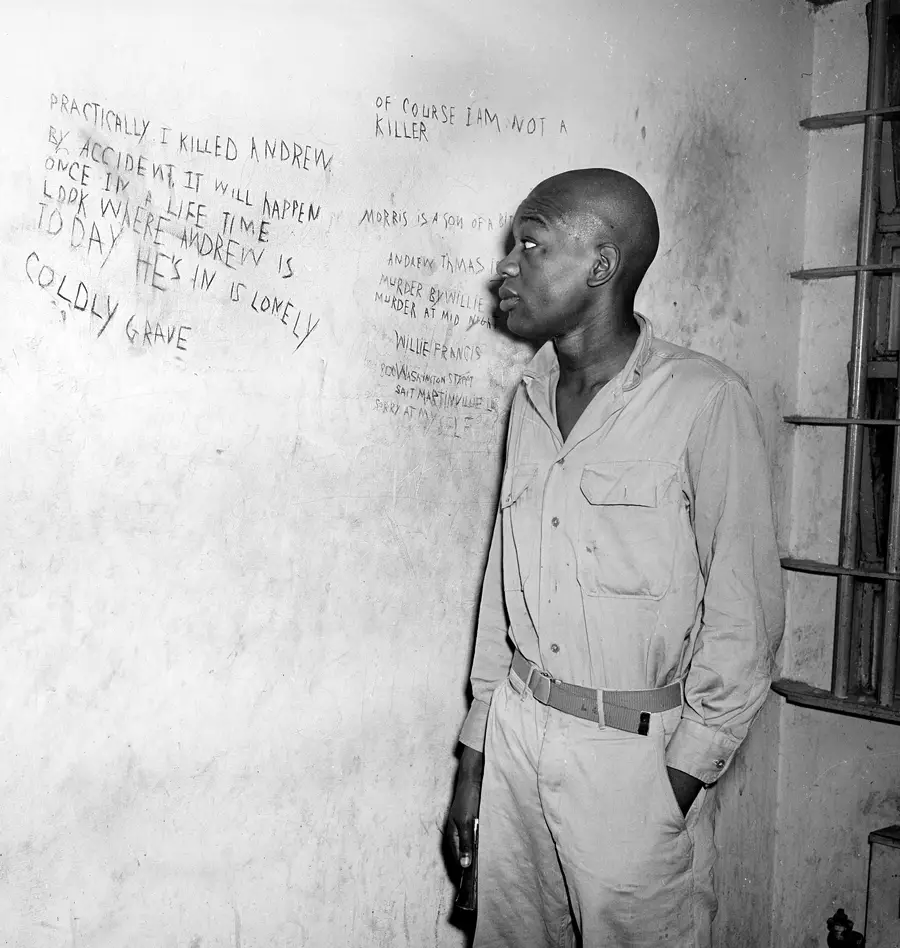 PRACTICALLY I KILLED ANDREW
BY ACCIDENT. IT WILL HAPPEN
ONCE IN A LIFE TIME
LOOK WHERE ANDREW IS
TO DAY HE'S IN IS LONELY
COLDLY GRAVE
OF COURSE I AM NOT A
KILLER
MORRIS IS A SON OF A BIT
ANDREW THMAS
MURDER BY WILLIE
MURDER AT MID NIGHT
WILLIE FRANCIS
800 WASHINGTON STREET
SAIT MARTINVILLE LA
SORRY AT MYSELF